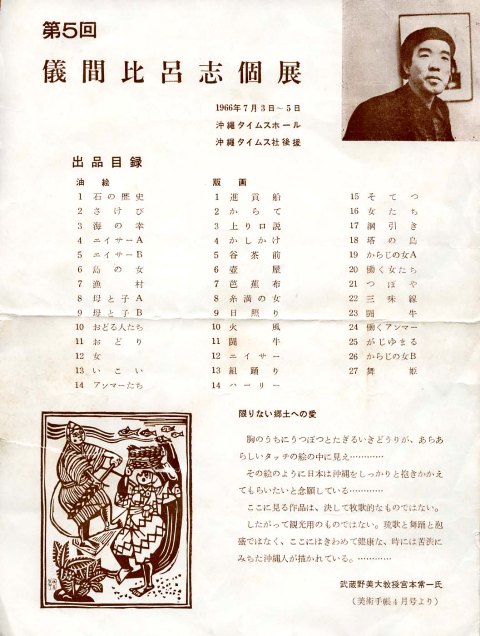 第5回
儀間比呂志個展
1966年7月3日～5日
沖縄タイムスホール
沖縄タイムス社後援
出品目録
油絵
1 石の歴史
2 さけび
3 海の幸
4 エイサーA
5 エイサーB
6 島の女
7 漁村
8 母と子A
9 母と子B
10 おどる人たち
11 おどり
12 女
13 いこい
14 アンマーたち
版画
1 進貢船
2 からて
3 上り口説
4 かしかけ
5 谷茶前
6 壺屋
7 芭蕉布
8 糸満の女
9 日照り
10 火風
11 闘牛
12 エイサー
13 組踊り
14 ハーリー
15 そてつ
16 女たち
17 綱引き
18 塔の島
19 からじの女A
20 働く女たち
21 つぼや
22 三味線
23 闘牛
24 働くアンマー
25 がじゆまる
26 からじの女B
27 舞姫
限りない郷土への愛
胸のうちにうつぼつとたぎるいきどうりが、あらあ
らしいタッチの絵の中に見え…………
その絵のように日本は沖縄をしっかりと抱きかかえ
てもらいたいと念願している…………
ここに見る作品は、決して牧歌的なものではない。
したがって観光用のものではない。琉歌と舞踊と泡
盛ではなく、ここにはきわめて健康な、時には苦渋に
みちた沖縄人が描かれている。…………
武蔵野美大教授宮本常一氏
（美術手帳4月号より）